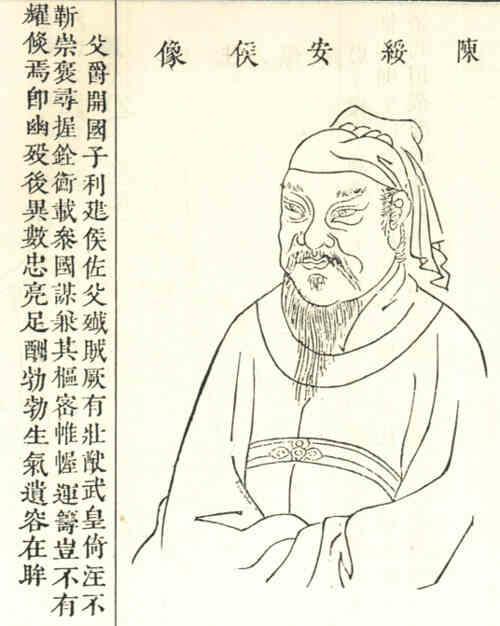 陳綏安侯像
父爵開國子利建侯佐父殲賊厥有壯猷武皇倚注不
靳崇褒尋握銓衡載參國謀其樞密帷幄運籌豈不有
耀倏焉卽幽歿後異數忠亮足酬勃勃生氣遺容在眸